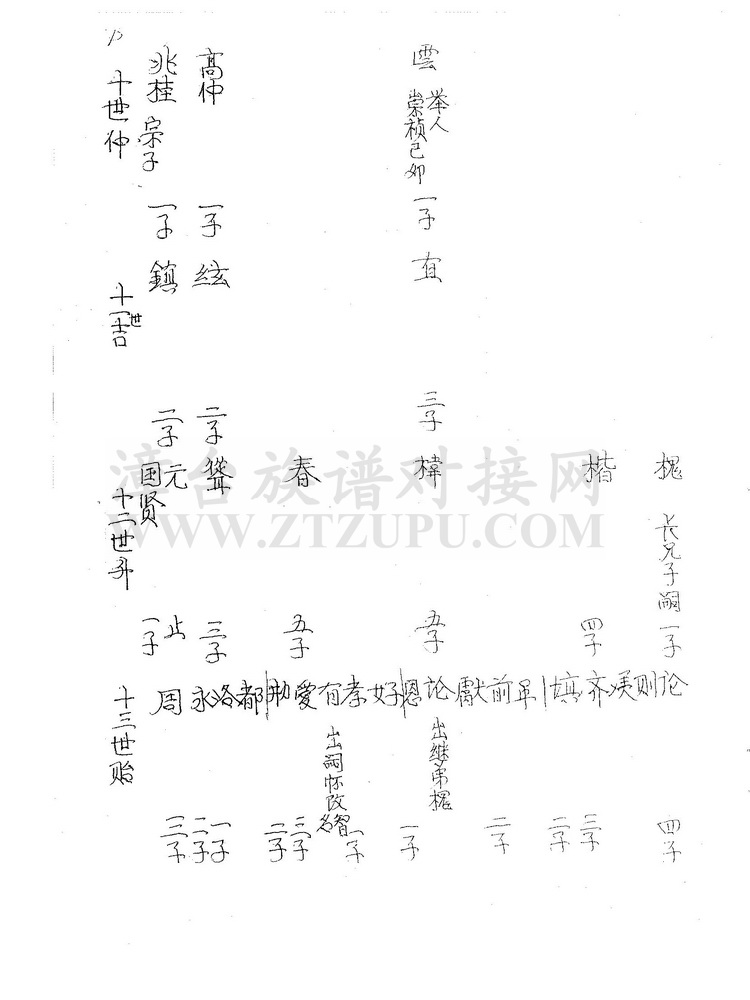 十世仲
兆桂 宗子
高仲
雲 举人
崇祯己卯
一子 鎮
一子 絃
一子 宜
十一世吉
二子
二子
三子
元
国贤
春
樟
楷
槐 长兄子嗣
十二世升
一子
止
三子
五子
五子
四子
一子
周
永洛都
勛愛有孝好
恩论獻前平
填齐溪则
论
十三世贻
出嗣怀改名智
出继弟槐
三子
二子
一子
二子
三子
一子
一子
二子
二子
三子
四子
漳台族谱对接网
WWW.ZTZUPU.COM